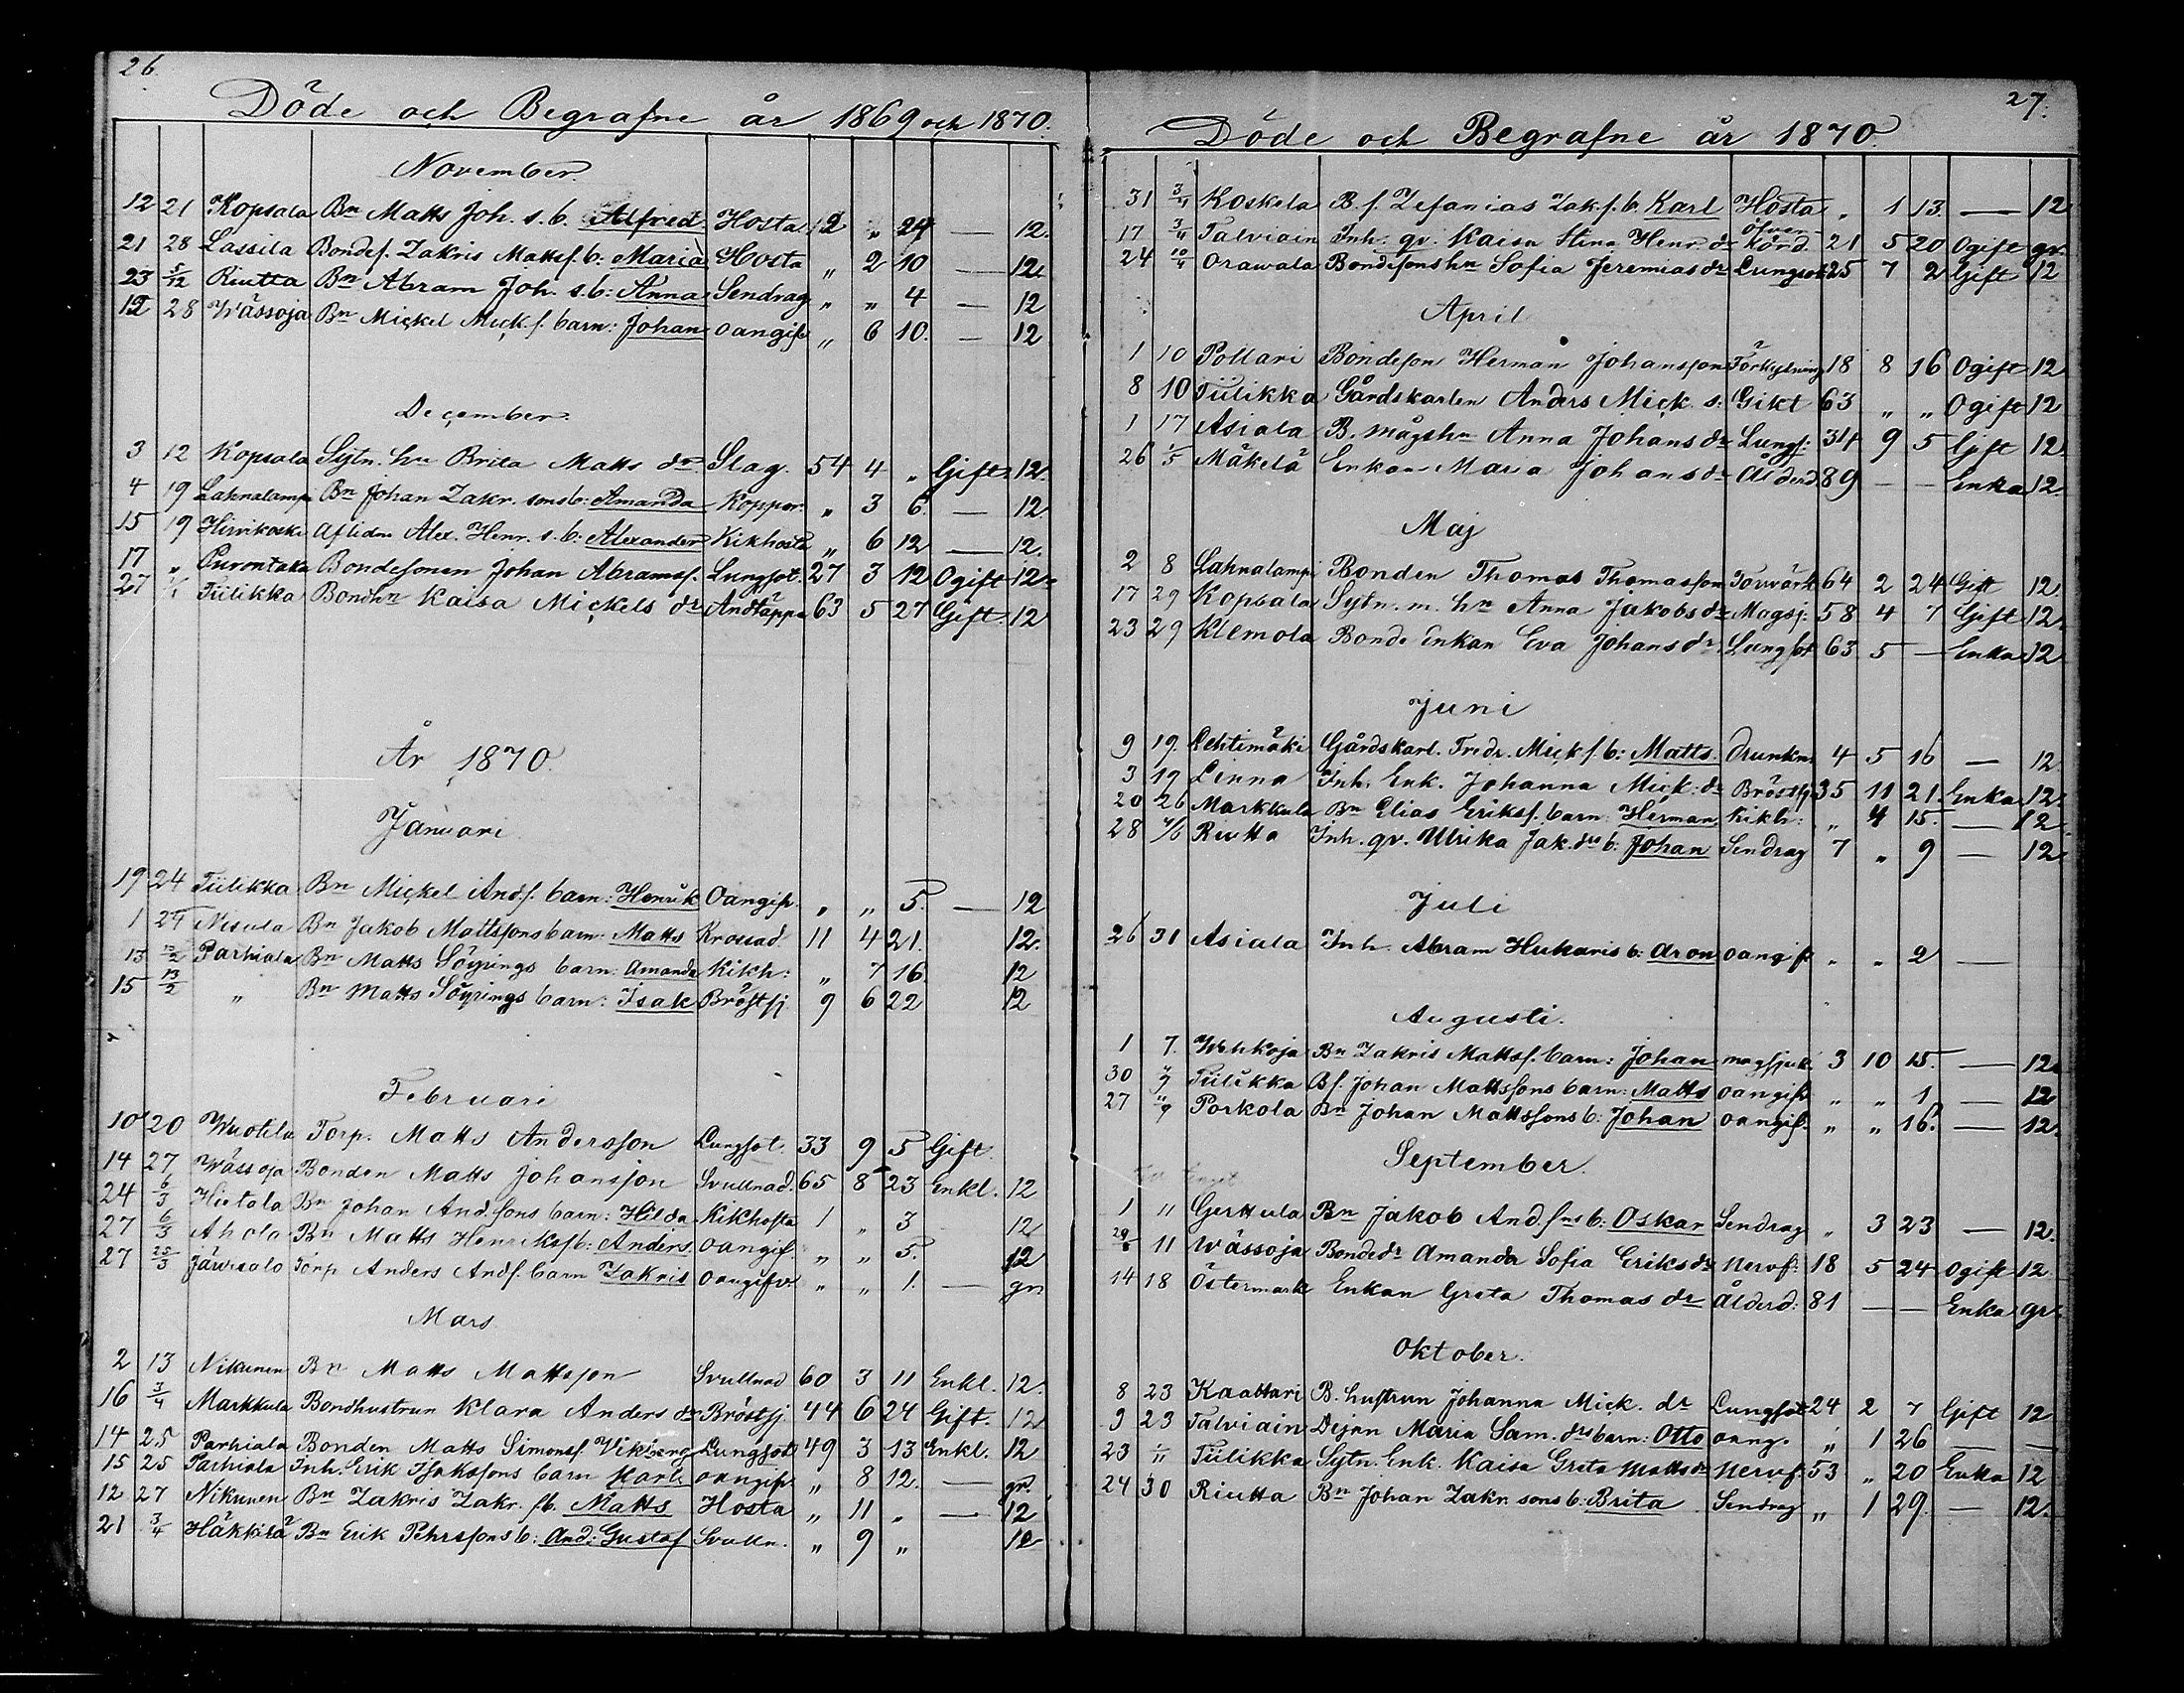 26.
Döde och Begrafne år 1869 och 1870.
November.
12 21 Kopsala Bn Matts Joh. s. b. Alfred. Hosta 12 " 24 — 12.
21 28 Lassila Bondes. Zakris Mattsf. b: Maria Hosta " 2 10 — 12.
23 5/12 Riutta Bn Abram Joh. s. b: Anna Sendrag " " 4 — 12
12 28 Wässoja Bn Mickel Mick. s. barn: Johan oangif " 6 10. — 12
December.
3 12 Kopsala Sytn. hu Brita Matts dr Slag. 54 4 " Gift 12.
4 19 Lahnalampi Bn Johan Zakr. sons b: Amanda Koppor. " 3 6. — 12.
15 19 Hirvikoski Aflidne Alex. Henr. s. b: Alexander Kikhosta " 6 12 — 12.
17 " Purontaka Bondesonen Johan Abramsf. Lungsot. 27 3 12 Ogift 12
27 1/1 Tiilikka Bondhn Kaisa Mickels dr Andtäppa 63 5 27 Gift. 12
År 1870.
Januari
19 24 Tiilikka Bn Mickel Andf. barn: Henrik Oangif. " " 5. — 12
1 24 Nisula Bn Jakob Mattssons barn: Matts Krossad 11 4 21. 12.
13 13/2 Parhiala Bn Matts Söyrings barn: Amanda Kikh: " 7 16. 12
15 13/2 " Bn Matts Söyrings barn: Isak Bröstsj. 9 6 22 12
Februari
10 20 Wuotila Torp. Matts Andersson Lungsot. 33 9 5 Gift.
14 27 Wässoja Bonden Matts Johansson Svullnad. 65 8 23 Enkl. 12
24 6/3 Hietala Bn Johan And. sons barn: Hilda Kikhosta 1 " 3 12
27 6/3 Ahola Bn Matts Henriksf b: Anders oangif " " 5. 12
27 25/3 Torp Anders Andf. barn Zakris oangifv. " " 1. — gr.
Mars
2 13 Nikunen Bn Matts Mattsson Svullnad 60 3 11 Enkl. 12.
16 3/4 Markkula Bondhustrun Klara Anders dr Bröstsj. 44 6 24 Gift. 12
14 25 Parhiala Bonden Matts Simonsf. Vikberg Lungsot 49 3 13 Enkl. 12
15 25 Parhiala Inh. Erik Isakssons barn Karl. oangif " 8 12. — gr.
12 27 Nikunen Bn Zakris Zakr. sb. Matts Hosta " 11 " — 12
21 3/4 Häkkilä Bn Erik Pehrssons b: And: Gustaf Svulln. " 9 " 12
27.
Döde och Begrafne år 1870.
31 3/4 Koskela B. s. Zefanias Zak. s. b. Karl Hosta " 1 13. — 12
17 3/4 Talviain Inh. qv. Kaisa Stina Henr. dr Öfverkörd. 21 5 20 Ogift gr.
24 10/4 Orawala Bondesonshn Sofia Jeremias dr Lungsot 25 7 2 Gift 12
April
1 10 Pollari Bondeson Herman Johansson Förkylning 18 8 16 Ogift 12
8 10 Tiilikka Gårdskarlen Anders Mick. s: Gikt 63 " " Ogift 12
1 17 Asiala B. mågshn Anna Johans dr Lungs: 34 9 5 Gift 12
26 1/5 Mäkelä Enkan Maria Johans dr Ålderd. 89 — — Enka 12
Maj
2 8 Lahnalampi Bonden Thomas Thomasson Torrvärk 64 2 24 Gift 12.
17 29 Kopsala Sytn. m. hn Anna Jakobs dr Magsj: 58 4 7 Gift 12.
23 29 Klemola Bonde Enkan Eva Johans dr Lungsot 63 5 — Enka 12
Juni
9 19. Lehtimäki Gårdskarl. Fredr. Mick s. b: Matts. drunkn. 4 5 16 — 12
3 19 Linna Inh. Enk. Johanna Mick: dr Bröstsj 35 11 21. Enka 12.
20 26 Markkula Bn Elias Eriksf. barn: Herman Kikh: " 4 15. — 12
28 4/6 Riutta Inh. qv. Ulrika Jak. drs b: Johan Sendrag 7 " 9 — 12.
Juli
26 31 Asiala Inh. Abram Hukaris b: Aron oangif " " 2 —
Augusti.
1 7. Wehkoja Bn Zakris Mattsf. barn: Johan magsjuk. 3 10 15. — 12.
30 4/9 Tiilikka Bs. Johan Mattssons barn: Matts oangif " " 1 — 12
27 4/9 Porkola Bn Johan Mattssons b: Johan oangif. " " 16. — 12.
September.
1 11 Gerttula Bn Jakob And. sns b: Oskar Sendrag " 3 23 — 12.
29/8 11 Wässoja Bonde dr Amanda Sofia Eriks dr Nervf: 18 5 24 Ogift 12.
14 18 Östermark Enkan Greta Thomas dr Ålderd: 81 — — Enka gr.
Oktober.
8 23 Kaattari B. hustrun Johanna Mick. dr Lungsot 24 2 7 Gift 12
9 23 Talviain Dejan Maria Sam. drs barn: Otto oang. " 1 26 — —
23 1/11 Tiilikka Sytn. Enk. Kaisa Greta Matts dr Nervf. 53 " 20 Enka 12
24 30 Riutta Bn Johan Zakr. sons b: Brita Sendrag " 1 29. — 12.